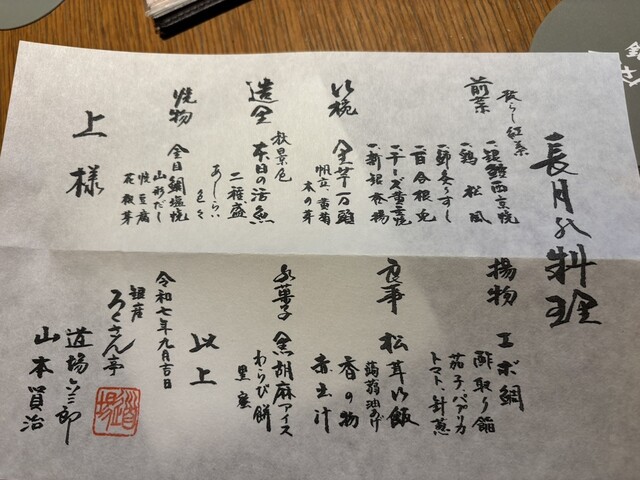 長月の料理
前菜
散らし紅葉
一、銀鱈西京焼
一、鶏松風
一、百合根
一、チーズ黄金焼
一、新銀杏揚
椀
里芋万頭
帆立、黄菊
木の芽
造里
秋景色
本日の活魚
二種盛
あしらい
色々
焼物
金目鯛塩焼
山形だし
焼豆腐
花椒芽
上様
揚物
エボ鯛
酢取り餡
茄子、パプリカ
トマト、針葱
食事
松茸御飯
蒟蒻、油あげ
香の物
赤出汁
水菓子
黒胡麻アイス
わらび餅
黒蜜
以上
令和七年九月吉日
銀座
ろくさん亭
道場六三郎
山本賢治
道場